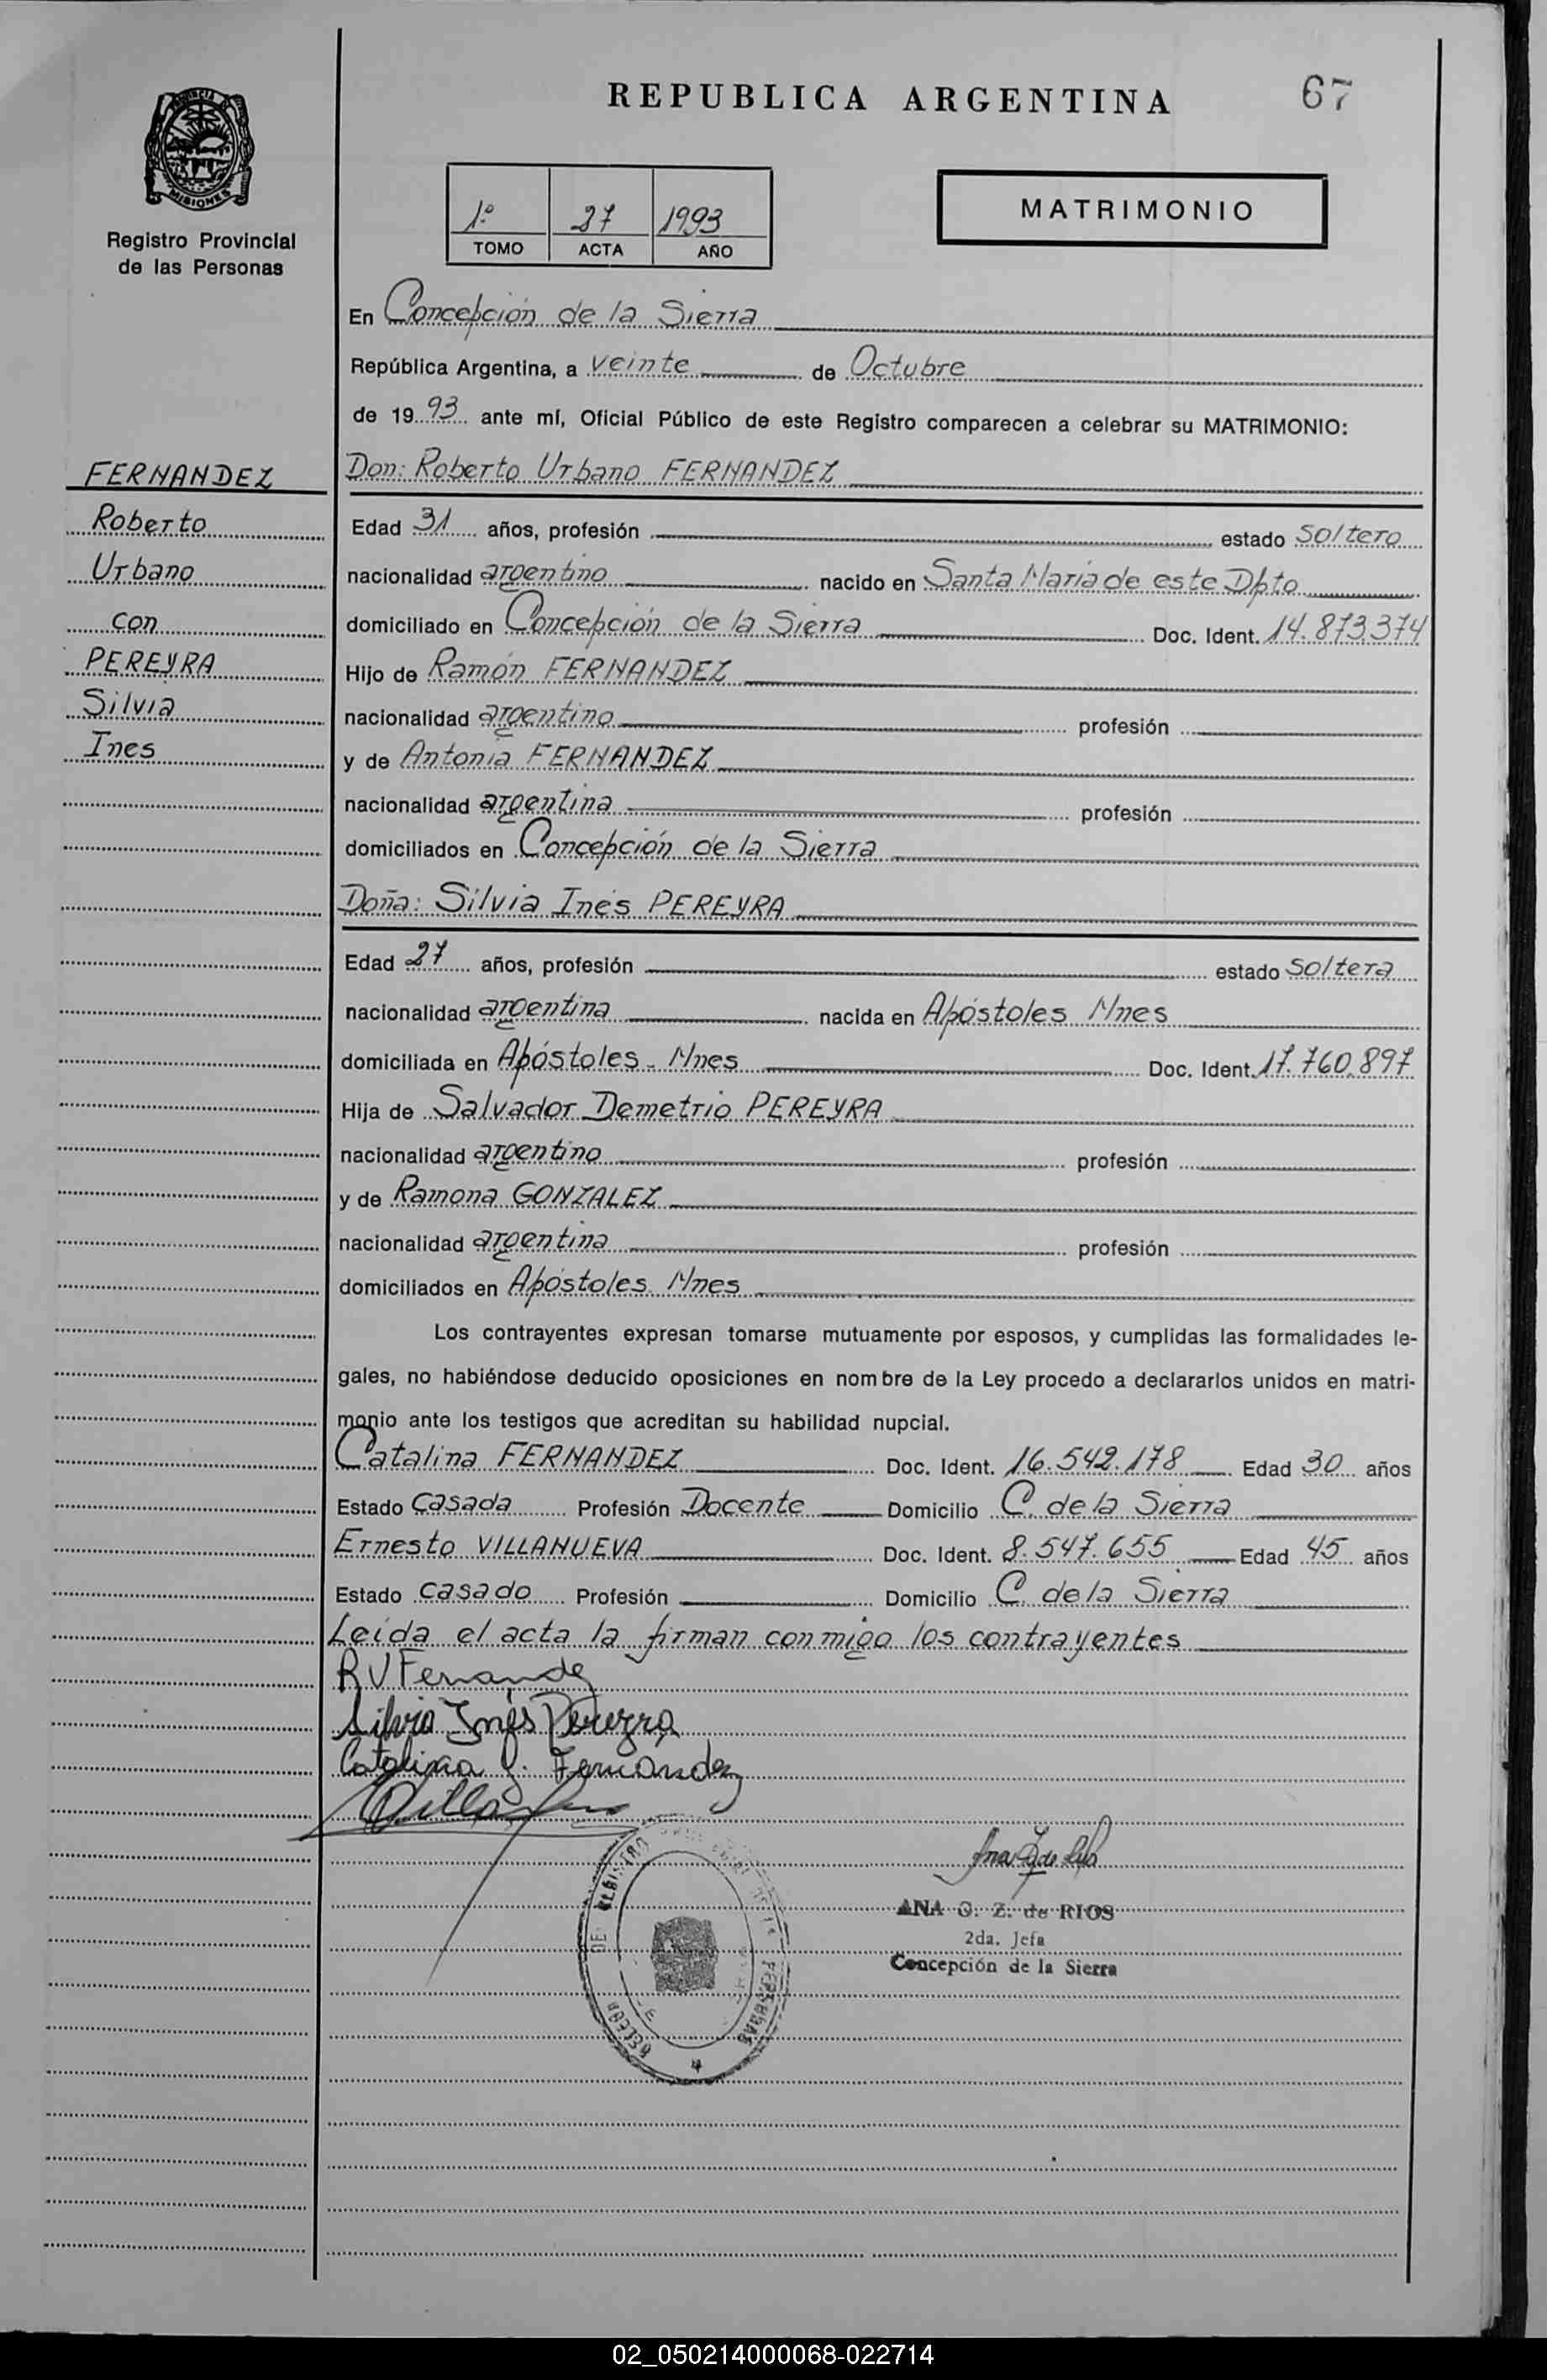 REPUBLICA ARGENTINA
67
PROVINCIA DE
MISIONES
Registro Provincial
de las Personas
1º 27 1993
TOMO ACTA AÑO
MATRIMONIO
En Concepción de la Sierra
República Argentina, a veinte de Octubre
de 1993 ante mí, Oficial Público de este Registro comparecen a celebrar su MATRIMONIO:
FERNANDEZ
Roberto
Urbano
con
PEREYRA
Silvia
Ines
Don: Roberto Urbano FERNANDEZ
Edad 31 años, profesión estado soltero
nacionalidad argentino nacido en Santa María de este Dpto
domiciliado en Concepción de la Sierra Doc. Ident. 14.873.374
Hijo de Ramón FERNANDEZ
nacionalidad argentino profesión
y de Antonia FERNANDEZ
nacionalidad argentina profesión
domiciliados en Concepción de la Sierra
Doña: Silvia Inés PEREYRA
Edad 27 años, profesión estado soltera
nacionalidad argentina nacida en Apóstoles Mnes
domiciliada en Apóstoles - Mnes Doc. Ident. 17.760.897
Hija de Salvador Demetrio PEREYRA
nacionalidad argentino profesión
y de Ramona GONZALEZ
nacionalidad argentina profesión
domiciliados en Apóstoles Mnes
Los contrayentes expresan tomarse mutuamente por esposos, y cumplidas las formalidades le-
gales, no habiéndose deducido oposiciones en nombre de la Ley procedo a declararlos unidos en matri-
monio ante los testigos que acreditan su habilidad nupcial.
Catalina FERNANDEZ Doc. Ident. 16.542.178 Edad 30 años
Estado casada Profesión Docente Domicilio C. de la Sierra
Ernesto VILLANUEVA Doc. Ident. 8.547.655 Edad 45 años
Estado casado Profesión Domicilio C. de la Sierra
Leída el acta la firman conmigo los contrayentes
RUFernandez
Silvia Inés Pereyra
Catalina G. Fernández
ANA O. Z. de RIOS
2da. Jefa
Concepción de la Sierra
02_050214000068-022714